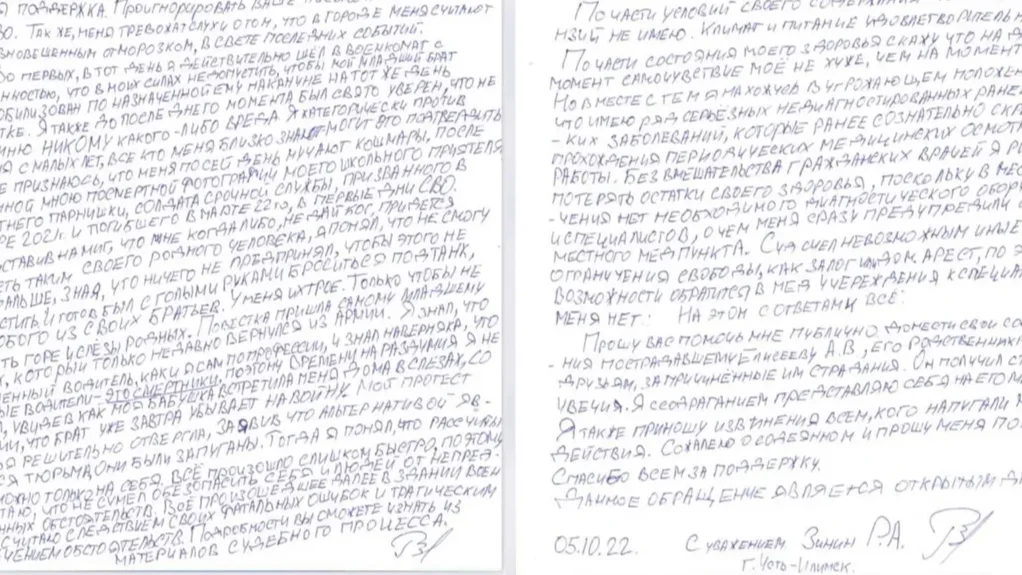 Я ПОДДЕРЖКА. ПРОИГНОРИРОВАТЬ ВАШЕ
ВО. ТАК ЖЕ, МЕНЯ ТРЕВОЖАТ СЛУХИ О ТОМ, ЧТО В ГОРОДЕ МЕНЯ СЧИТАЮТ
ВНОВЕШЕННЫМ ОТМОРОЗКОМ, В СВЕТЕ ПОСЛЕДНИХ СОБЫТИЙ.
ВО ПЕРВЫХ, В ТОТ ДЕНЬ Я ДЕЙСТВИТЕЛЬНО ШЁЛ В ВОЕНКОМАТ С
ННОСТЬЮ, ЧТО В МОИХ СИЛАХ НЕ ДОПУСТИТЬ, ЧТОБЫ МОЙ МЛАДШИЙ БРАТ
ОБИЛИЗОВАН ПО НАЗНАЧЕННОЙ ЕМУ НАКАНУНЕ НА ТОТ ЖЕ ДЕНЬ
ТКЕ. Я ТАКЖЕ ДО ПОСЛЕДНЕГО МОМЕНТА БЫЛ СВЯТО УВЕРЕН, ЧТО НЕ
ИНЮ НИКОМУ КАКОГО-ЛИБО ВРЕДА. Я КАТЕГОРИЧЕСКИ ПРОТИВ
Я С МАЛЫХ ЛЕТ, ВСЕ КТО МЕНЯ БЛИЗКО ЗНАЮТ МОГУТ ЭТО ПОДТВЕРДИТЬ
Е ПРИЗНАЮСЬ, ЧТО МЕНЯ ПО СЕЙ ДЕНЬ МУЧАЮТ КОШМАРЫ, ПОСЛЕ
ННОЙ МНОЮ ПОСМЕРТНОЙ ФОТОГРАФИИ МОЕГО ШКОЛЬНОГО ПРИЯТЕЛЯ
ТНЕГО ПАРНИШКИ, СОЛДАТА СРОЧНОЙ СЛУЖБЫ, ПРИЗВАННОГО В
РЕ 2021г. И ПОГИБШЕГО В МАРТЕ 22го, В ПЕРВЫЕ ДНИ СВО.
СТАВИВ НА МИГ, ЧТО МНЕ КОГДА ЛИБО, НЕ ДАЙ БОГ, ПРИДЕТСЯ
ЕТЬ ТАКИМ СВОЕГО РОДНОГО ЧЕЛОВЕКА, Я ПОНЯЛ, ЧТО НЕ СМОГУ
АЛЬШЕ, ЗНАЯ, ЧТО НИЧЕГО НЕ ПРЕДПРИНЯЛ, ЧТОБЫ ЭТОГО НЕ
СТИТЬ. И ГОТОВ БЫЛ С ГОЛЫМИ РУКАМИ БРОСИТЬСЯ ПОД ТАНК,
ЮБОГО ИЗ СВОИХ БРАТЬЕВ. У МЕНЯ ИХ ТРОЕ. ТОЛЬКО ЧТОБЫ НЕ
ТЬ ГОРЕ И СЛЁЗЫ РОДНЫХ. ПОВЕСТКА ПРИШЛА САМОМУ МЛАДШЕМУ
, КОТОРЫЙ ТОЛЬКО НЕДАВНО ВЕРНУЛСЯ ИЗ АРМИИ. Я ЗНАЛ, ЧТО
ЕННЫЙ ВОДИТЕЛЬ, КАК И Я САМ ПО ПРОФЕССИИ, И ЗНАЛ НАВЕРНЯКА, ЧТО
ЫЕ ВОДИТЕЛИ - ЭТО СМЕРТНИКИ, ПОЭТОМУ ВРЕМЕНИ НА РАЗДУМИЯ Я НЕ
Л, УВИДЕВ КАК МОЯ БАБУШКА ВСТРЕТИЛА МЕНЯ ДОМА В СЛЕЗАХ, СО
МИ, ЧТО БРАТ УЖЕ ЗАВТРА УБЫВАЕТ НА ВОЙНУ. МОЙ ПРОТЕСТ
Я РЕШИТЕЛЬНО ОТВЕРГЛА, ЗАЯВИВ ЧТО АЛЬТЕРНАТИВОЙ ЯВ-
СЯ ТЮРЬМА, ОНИ БЫЛИ ЗАПУГАНЫ. ТОГДА Я ПОНЯЛ, ЧТО РАССЧИТЫВ
МОЖНО ТОЛЬКО НА СЕБЯ. ВСЁ ПРОИЗОШЛО СЛИШКОМ БЫСТРО, ПОЭТОМУ
ТАЮ, ЧТО НЕ СУМЕЛ ОБЕЗОПАСИТЬ СЕБЯ И ЛЮДЕЙ ОТ НЕПРЕД-
ННЫХ ОБСТОЯТЕЛЬСТВ. ВСЁ ПРОИЗОШЕДШЕЕ ДАЛЕЕ В ЗДАНИИ ВОЕН
СЧИТАЮ СЛЕДСТВИЕМ СВОИХ ФАТАЛЬНЫХ ОШИБОК И ТРАГИЧЕСКИМ
ЧЕНИЕМ ОБСТОЯТЕЛЬСТВ. ПОДРОБНОСТИ ВЫ СМОЖЕТЕ УЗНАТЬ ИЗ
МАТЕРИАЛОВ СУДЕБНОГО ПРОЦЕССА.
ПО ЧАСТИ УСЛОВИЙ СВОЕГО СОДЕРЖАНИЯ
НЗИЙ НЕ ИМЕЮ. КЛИМАТ И ПИТАНИЕ УДОВЛЕТВОРИТЕЛЬН
ПО ЧАСТИ СОСТОЯНИЯ МОЕГО ЗДОРОВЬЯ СКАЖУ ЧТО НА Д
МОМЕНТ САМОЧУВСТВИЕ МОЁ НЕ ХУЖЕ, ЧЕМ НА МОМЕНТ
НО ВМЕСТЕ С ТЕМ Я НАХОЖУСЬ В УГРОЖАЮЩЕМ ПОЛОЖЕН
ЧТО ИМЕЮ РЯД СЕРЬЁЗНЫХ НЕДИАГНОСТИРОВАННЫХ РАНЕ
- КИХ ЗАБОЛЕВАНИЙ, КОТОРЫЕ РАНЕЕ СОЗНАТЕЛЬНО СКР
ПРОХОЖДЕНИЯ ПЕРИОДИЧЕСКИХ МЕДИЦИНСКИХ ОСМОТР
РАБОТЫ. БЕЗ ВМЕШАТЕЛЬСТВА ГРАЖДАНСКИХ ВРАЧЕЙ Я РИ
ПОТЕРЯТЬ ОСТАТКИ СВОЕГО ЗДОРОВЬЯ, ПОСКОЛЬКУ В МЕС
- ЧЕНИЯ НЕТ НЕОБХОДИМОГО ДИАГНОСТИЧЕСКОГО ОБОРУ
И СПЕЦИАЛИСТОВ, О ЧЕМ МЕНЯ СРАЗУ ПРЕДУПРЕДИЛИ
МЕСТНОГО МЕДПУНКТА. СУД СЧЕЛ НЕВОЗМОЖНЫМ ИНЫЕ
ОГРАНИЧЕНИЯ СВОБОДЫ, КАК ЗАЛОГ ИЛИ ДОМ. АРЕСТ, ПО Э
ВОЗМОЖНОСТИ ОБРАТИТСЯ В МЕД УЧЕРЕЖДЕНИЯ К СПЕЦИА
МЕНЯ НЕТ. НА ЭТОМ С ОТВЕТАМИ ВСЁ.
ПРОШУ ВАС ПОМОЧЬ МНЕ ПУБЛИЧНО ДОНЕСТИ СВОИ СО
- НИЯ ПОСТРАДАВШЕМУ ЕЛИСЕЕВУ А.В, ЕГО РОДСТВЕННИК
ДРУЗЬЯМ, ЗА ПРИЧИНЁННЫЕ ИМ СТРАДАНИЯ. ОН ПОЛУЧИЛ СТ
УВЕЧИЯ. Я С СОДРАГАНИЕМ ПРЕДСТАВЛЯЮ СЕБЯ НА ЕГО М
Я ТАКЖЕ ПРИНОШУ ИЗВИНЕНИЯ ВСЕМ, КОГО НАПУГАЛИ М
ДЕЙСТВИЯ. СОЖАЛЕЮ О СОДЕЯНОМ И ПРОШУ МЕНЯ ПО
СПАСИБО ВСЕМ ЗА ПОДДЕРЖКУ.
ДАННОЕ ОБРАЩЕНИЕ ЯВЛЯЕТСЯ ОТКРЫТЫМ Д
05.10.22. С УВАЖЕНИЕМ ЗИНИН Р.А.
Г. УСТЬ-ИЛИМСК.